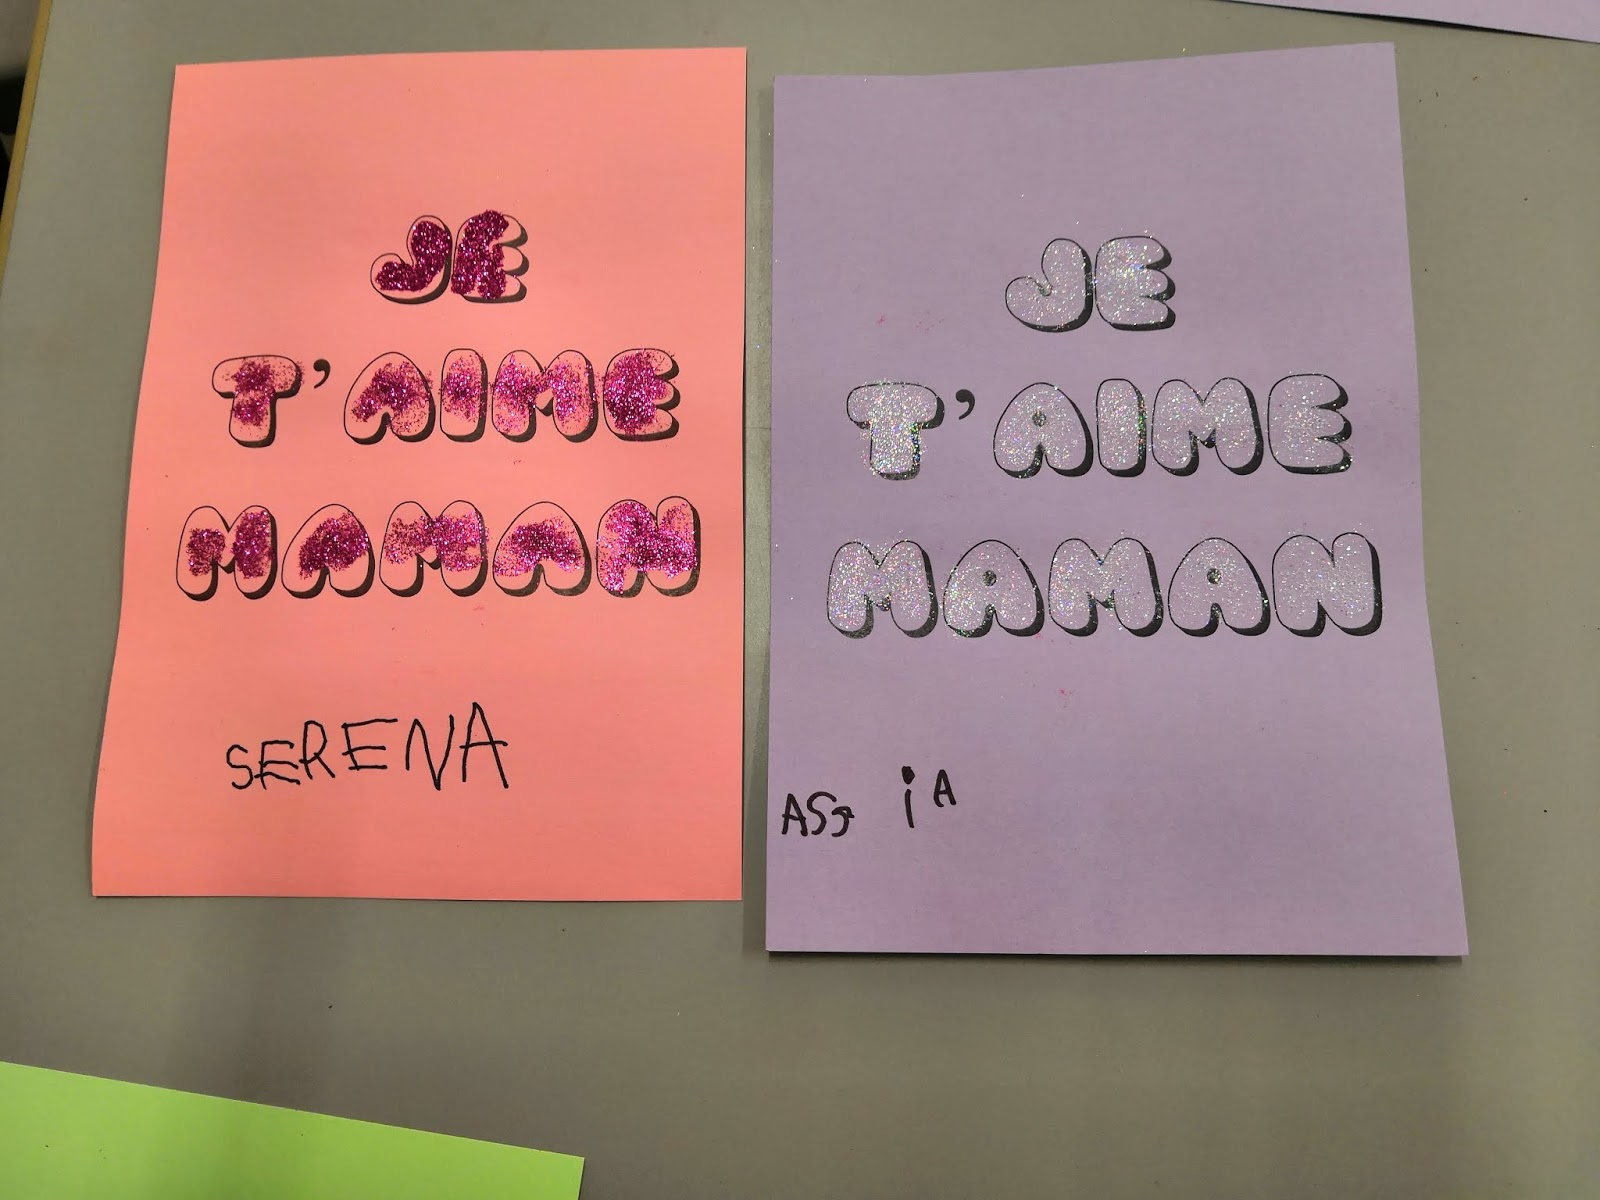 JE
T'AIME
MAMAN
SERENA
JE
T'AIME
MAMAN
iA